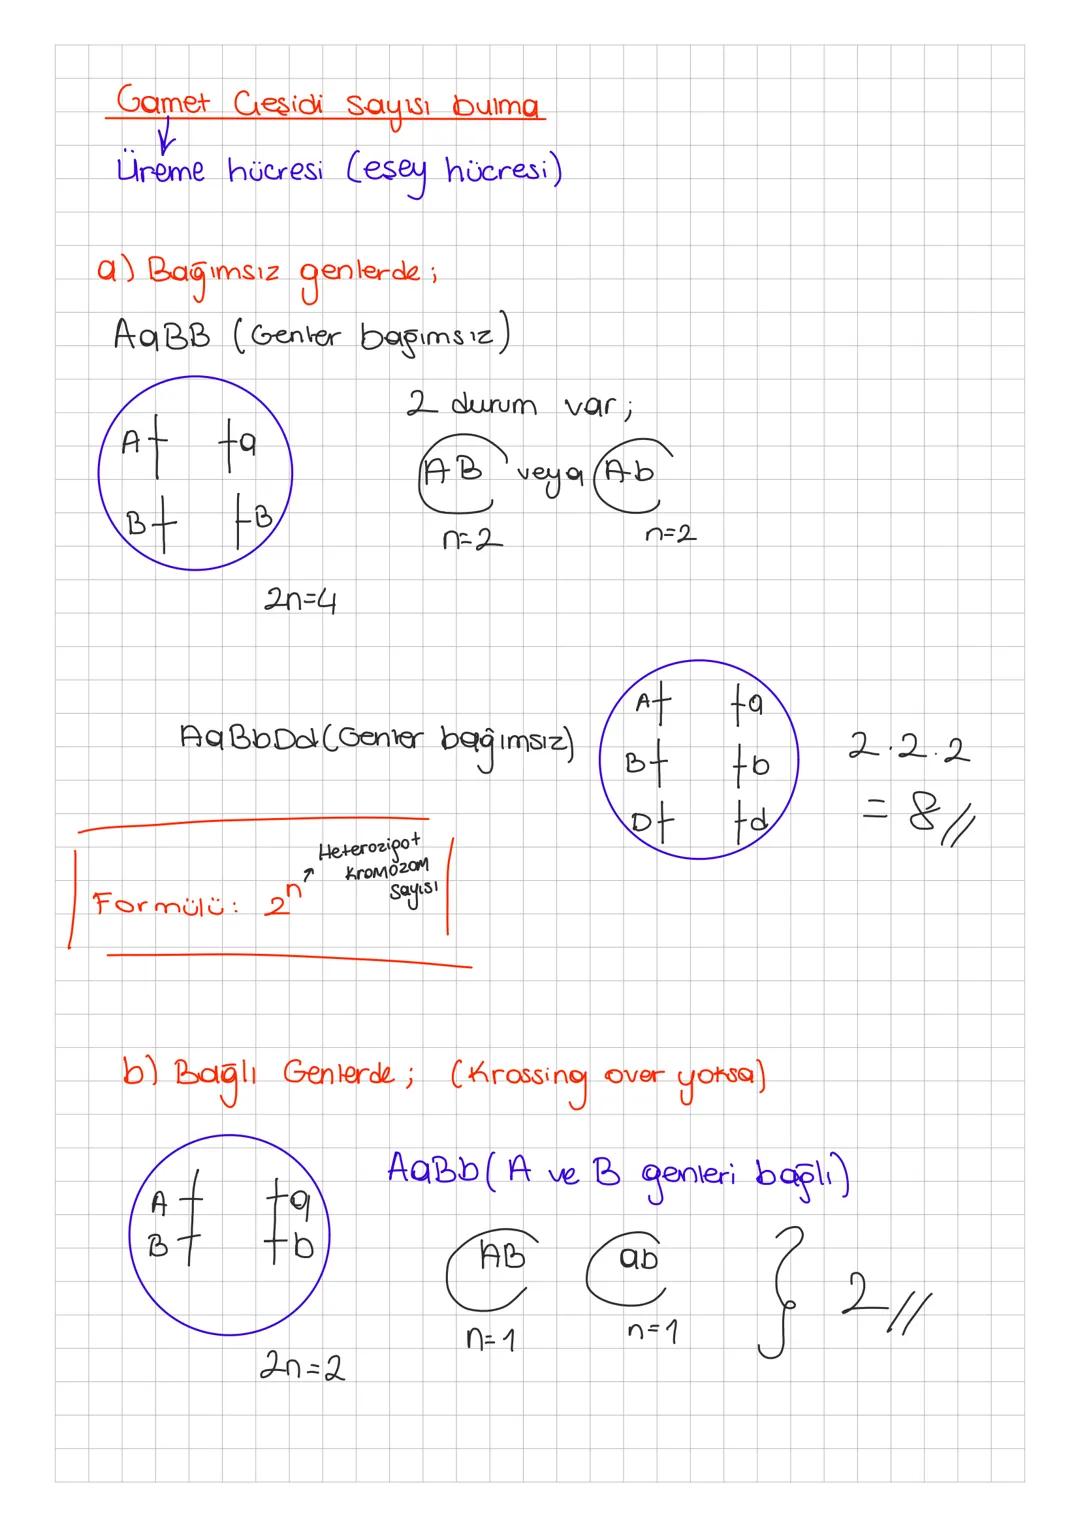 Gamet Çeşidi sayısı bulma
Üreme hücresi (eşey hücresi)
a) Bağımsız genlerde;
AaBB (Genler bağımsız)
2 durum var;
A a
B B
AB veya Ab
n=2 n=2
2n=4
AaBbDd (Genler bağımsız)
A a
B b
D d
2.2.2
= 8//
Formülü: 2ⁿ
Heterozigot
Kromozom
sayısı
b) Bağlı Genlerde; (Krossing over yoksa)
AaBb (A ve B genleri bağlı)
A a
B b
AB ab } 2//
n=1 n=1
2n=2